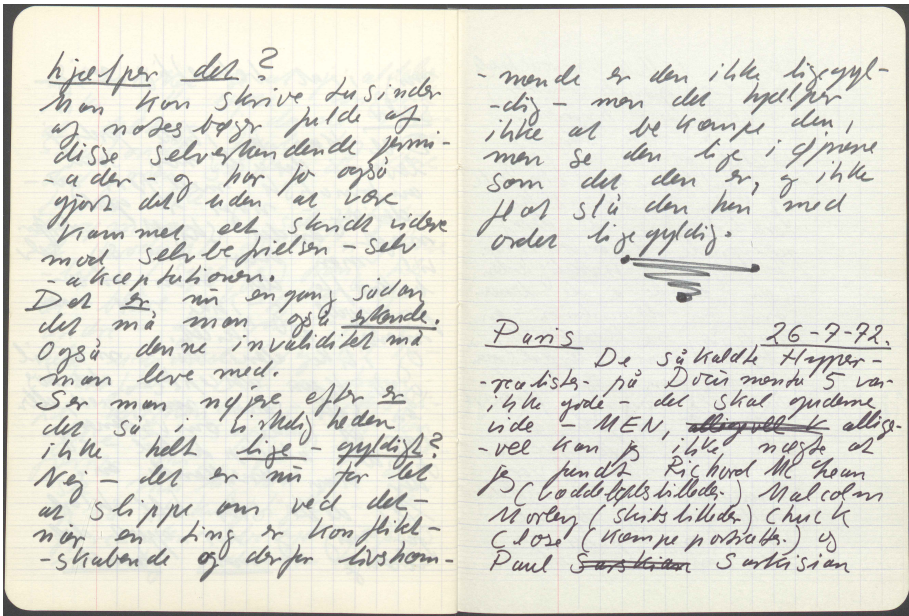 hjælper det?
Man kan skrive tusinder
af notesbøger fulde af
disse selverkendende jermi-
-ader - og har jo også
gjort det uden at være
kommet eet skridt videre
mod selvbefrielsen - selv
-akceptationen.
Det er nu engang sådan
det må man også erkende.
Også denne invaliditet må
man leve med.
Ser man nøjere efter er
det så i virkeligheden
ikke helt lige - gyldigt?
Nej - det er nu for let
at slippe om ved det -
når en ting er konflikt-
-skabende og derfor livshæm-
-mende er den ikke ligegyl-
-dig - men det hjælper
ikke at bekæmpe den,
men se den lige i øjnene
som det den er, og ikke
flot slå den hen med
ordet ligegyldig.
Paris 26-7-72.
De såkaldte Hyper-
-realister på Documenta 5 var
ikke gode - det skal guderne
vide - MEN, allige-
-vel kan jeg ikke nægte at
jeg fandt Richard Mc Lean
(væddeløbsbilleder) Malcolm
Morley (skibsbilleder) Chuck
Close (kæmpe portrætter) og
Paul Sarkisian